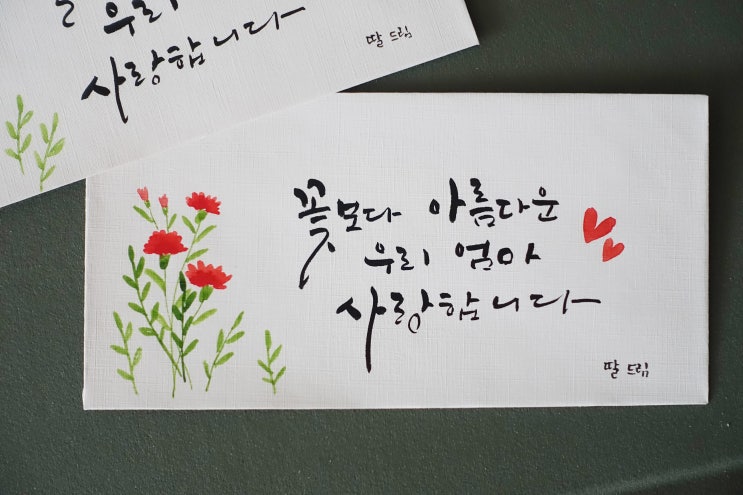 우리
사랑합니다
딸 드림
꽃보다 아름다운
우리 엄마
사랑합니다
딸 드림